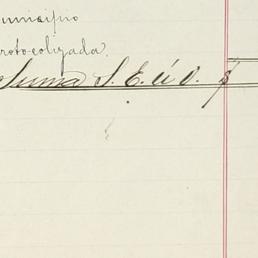 unicipio
rotocolizada.
Suma S. E. ú O. $